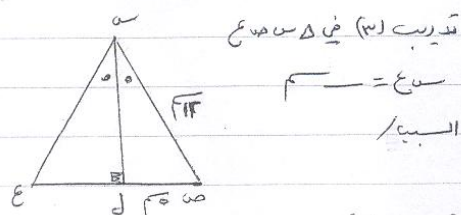 تدريب (٣) في △ س ص ع
س ع = ــــ سم
السبب /
س
١٣ سم
ع
ل
٥ سم
ص